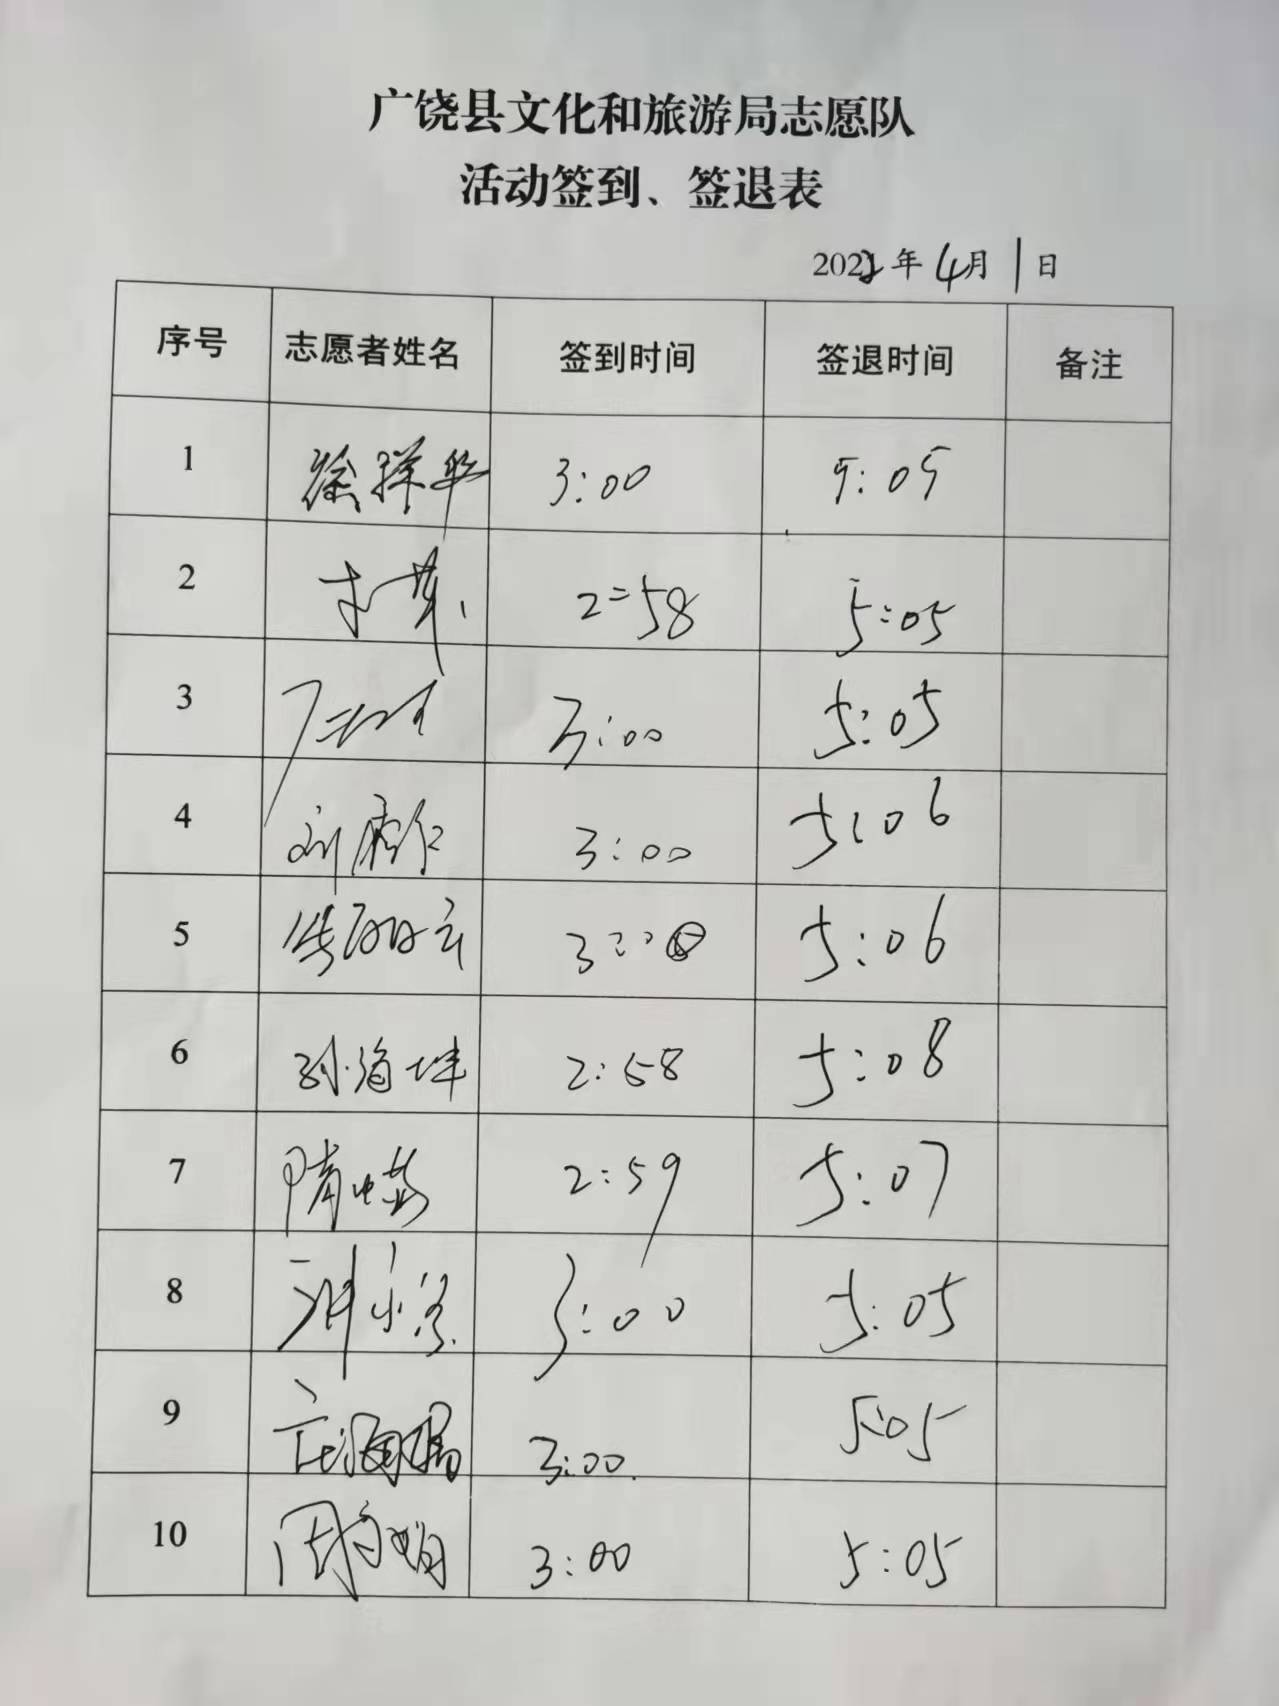 广饶县文化和旅游局志愿队
活动签到、签退表
2022年4月1日
序号 志愿者姓名 签到时间 签退时间 备注
1 徐祥华 3:00 5:05
2 2:58 5:05
3 3:00 5:05
4 3:00 5:06
5 3:00 5:06
6 孙海坤 2:58 5:08
7 隋 2:59 5:07
8 3:00 5:05
9 3:00 5:05
10 周 娟 3:00 5:05